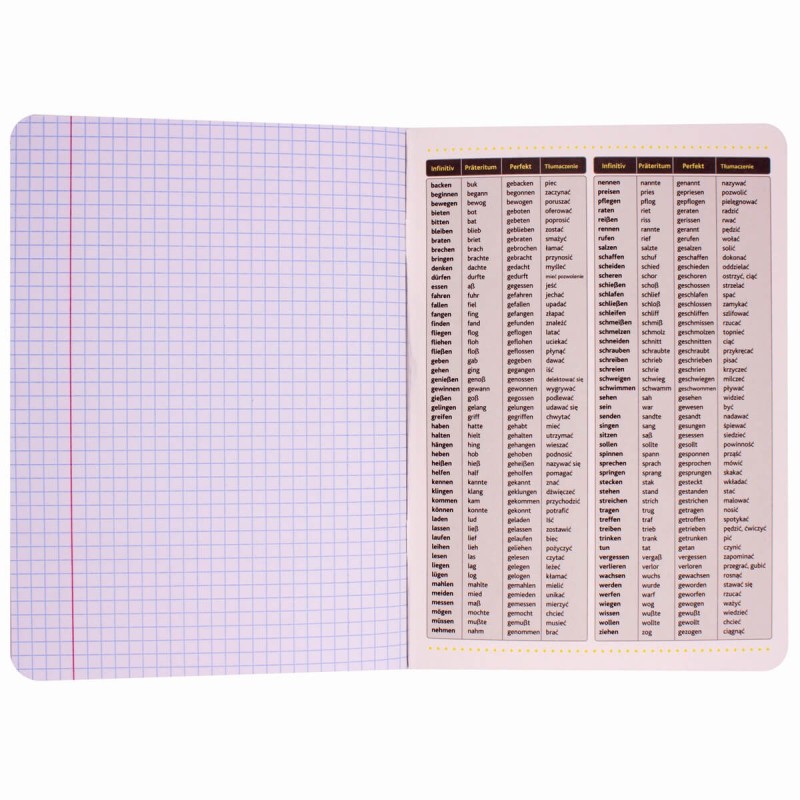 Infinitiv Präteritum Perfekt Tłumaczenie
backen buk gebacken piec
beginnen begann begonnen zaczynać
bewegen bewog bewogen poruszać
bieten bot geboten oferować
bitten bat gebeten poprosić
bleiben blieb geblieben zostać
braten briet gebraten smażyć
brechen brach gebrochen łamać
bringen brachte gebracht przynosić
denken dachte gedacht myśleć
dürfen durfte gedurft mieć pozwolenie
essen aß gegessen jeść
fahren fuhr gefahren jechać
fallen fiel gefallen upadać
fangen fing gefangen złapać
finden fand gefunden znaleźć
fliegen flog geflogen latać
fliehen floh geflohen uciekać
fließen floß geflossen płynąć
geben gab gegeben dawać
gehen ging gegangen iść
genießen genoß genossen delektować się
gewinnen gewann gewonnen wygrywać
gießen goß gegossen podlewać
gelingen gelang gelungen udawać się
greifen griff gegriffen chwytać
haben hatte gehabt mieć
halten hielt gehalten utrzymać
hängen hing gehangen wieszać
heben hob gehoben podnosić
heißen hieß geheißen nazywać się
helfen half geholfen pomagać
kennen kannte gekannt znać
klingen klang geklungen dźwięczeć
kommen kam gekommen przychodzić
können konnte gekonnt potrafić
laden lud geladen iść
lassen ließ gelassen zostawić
laufen lief gelaufen biec
leihen lieh geliehen pożyczyć
lesen las gelesen czytać
liegen lag gelegen leżeć
lügen log gelogen kłamać
mahlen mahlte gemahlen mielić
meiden mied gemieden unikać
messen maß gemessen mierzyć
mögen mochte gemocht chcieć
müssen mußte gemußt musieć
nehmen nahm genommen brać
Infinitiv Präteritum Perfekt Tłumaczenie
nennen nannte genannt nazywać
preisen pries gepriesen pozwolić
pflegen pflog gepflogen pielęgnować
raten riet geraten radzić
reißen riss gerissen rwać
rennen rannte gerannt pędzić
rufen rief gerufen wołać
salzen salzte gesalzen solić
schaffen schuf geschaffen dokonać
scheiden schied geschieden oddzielać
scheren schor geschoren ostrzyć, ciąć
schießen schoß geschossen strzelać
schlafen schlief geschlafen spać
schließen schloß geschlossen zamykać
schleifen schliff geschliffen szlifować
schmeißen schmiß geschmissen rzucać
schmelzen schmolz geschmolzen topnieć
schneiden schnitt geschnitten ciąć
schrauben schraubte geschraubt przykręcać
schreiben schrieb geschrieben pisać
schreien schrie geschrien krzyczeć
schweigen schwieg geschwiegen milczeć
schwimmen schwamm geschwommen pływać
sehen sah gesehen widzieć
sein war gewesen być
senden sandte gesandt nadawać
singen sang gesungen śpiewać
sitzen saß gesessen siedzieć
sollen sollte gesollt powinność
spinnen spann gesponnen prząść
sprechen sprach gesprochen mówić
springen sprang gesprungen skakać
stecken stak gesteckt wkładać
stehen stand gestanden stać
streichen strich gestrichen malować
tragen trug getragen nosić
treffen traf getroffen spotykać
treiben trieb getrieben pędzić, ćwiczyć
trinken trank getrunken pić
tun tat getan czynić
vergessen vergaß vergessen zapominać
verlieren verlor verloren przegrać, gubić
wachsen wuchs gewachsen rosnąć
werden wurde geworden stawać się
werfen warf geworfen rzucać
wiegen wog gewogen ważyć
wissen wußte gewußt wiedzieć
wollen wollte gewollt chcieć
ziehen zog gezogen ciągnąć